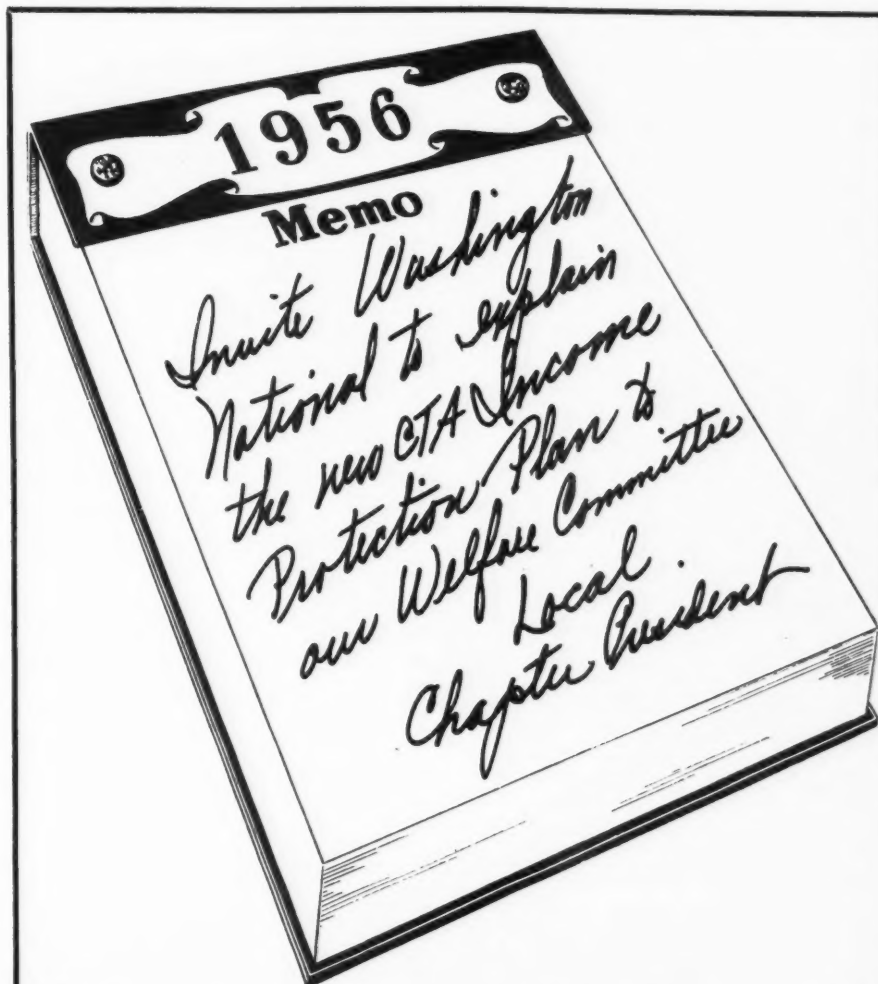 1956
Memo
Invite Washington
National to explain
the new CTA Income
Protection Plan to
our Welfare Committee
Local
Chapter President